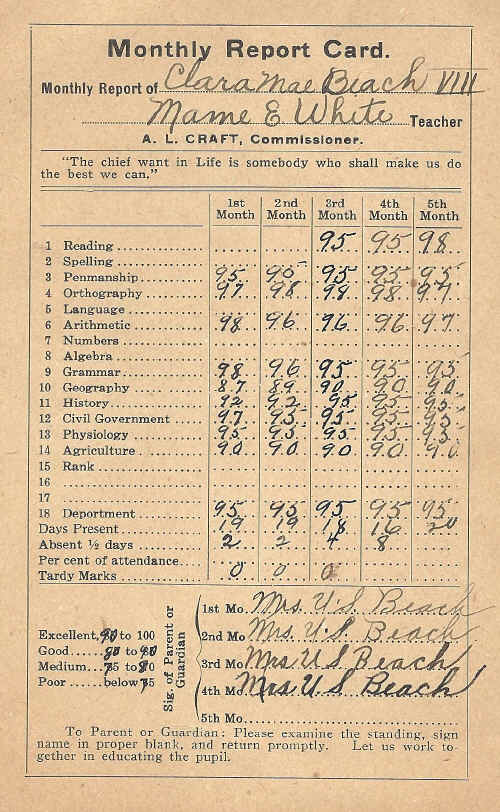 Monthly Report Card.
Monthly Report of Clara Mae Beach VIII
Mame E White Teacher
A. L. CRAFT, Commissioner.
"The chief want in Life is somebody who shall make us do
the best we can."
1st Month 2nd Month 3rd Month 4th Month 5th Month
1 Reading 95 95 98
2 Spelling
3 Penmanship 95 95 95 95 95
4 Orthography 97 98 98 98 97
5 Language
6 Arithmetic 98 96 96 96 97
7 Numbers
8 Algebra
9 Grammar 98 96 95 95 95
10 Geography 87 89 90 90 90
11 History 92 92 95 95 95
12 Civil Government 97 95 95 95 95
13 Physiology 95 95 95 95 95
14 Agriculture 90 90 90 90 90
15 Rank
16
17
18 Deportment 95 95 95 95 95
Days Present 19 19 18 16 20
Absent ½ days 2 2 4 8
Per cent of attendance
Tardy Marks 0 0 0
Sig. of Parent or Guardian
1st Mo. Mrs. U.S. Beach
Excellent, 90 to 100 2nd Mo. Mrs. U.S. Beach
Good 80 to 90 3rd Mo. Mrs. U.S. Beach
Medium 75 to 80 4th Mo. Mrs. U.S. Beach
Poor below 75
5th Mo.
To Parent or Guardian: Please examine the standing, sign
name in proper blank, and return promptly. Let us work to-
gether in educating the pupil.